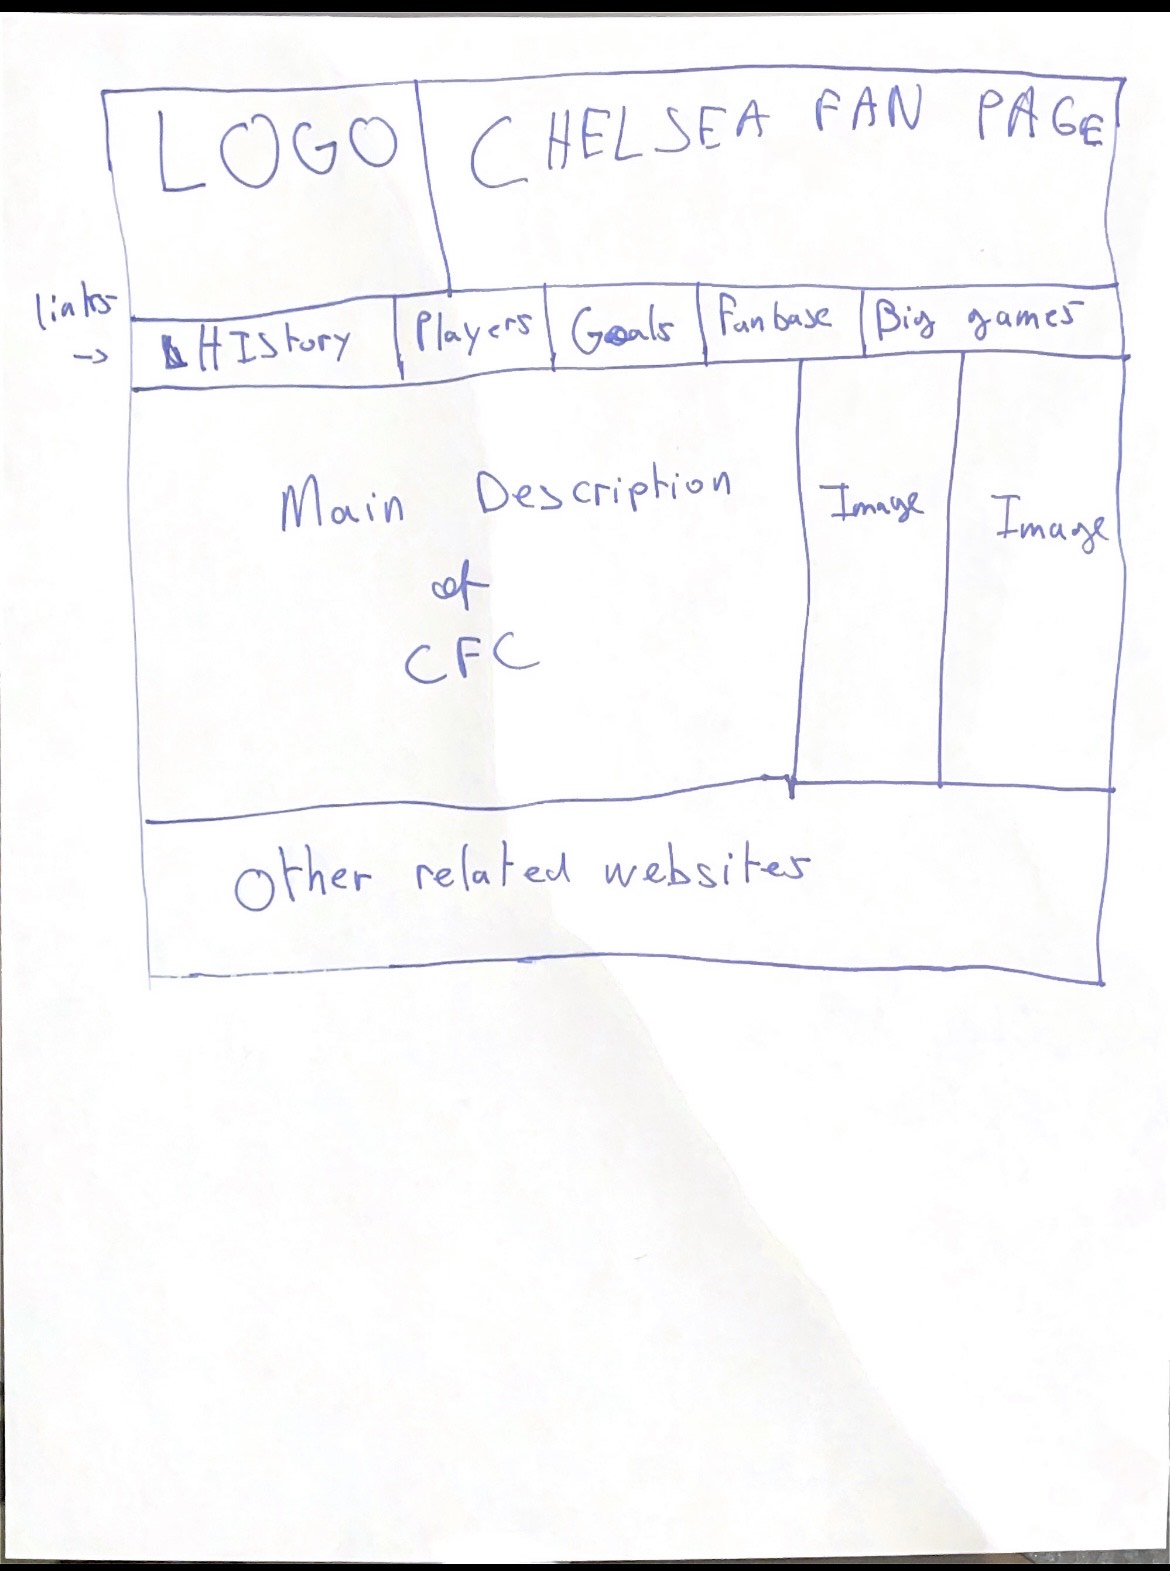 LOGO
CHELSEA FAN PAGE
links
→
HIStory
Players
Goals
Fanbase
Big games
Main Description
of
CFC
Image
Image
Other related websites